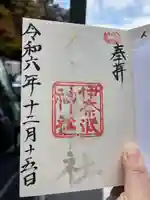 奉拝
伊奈波
神社
社
令和六年十二月十五日